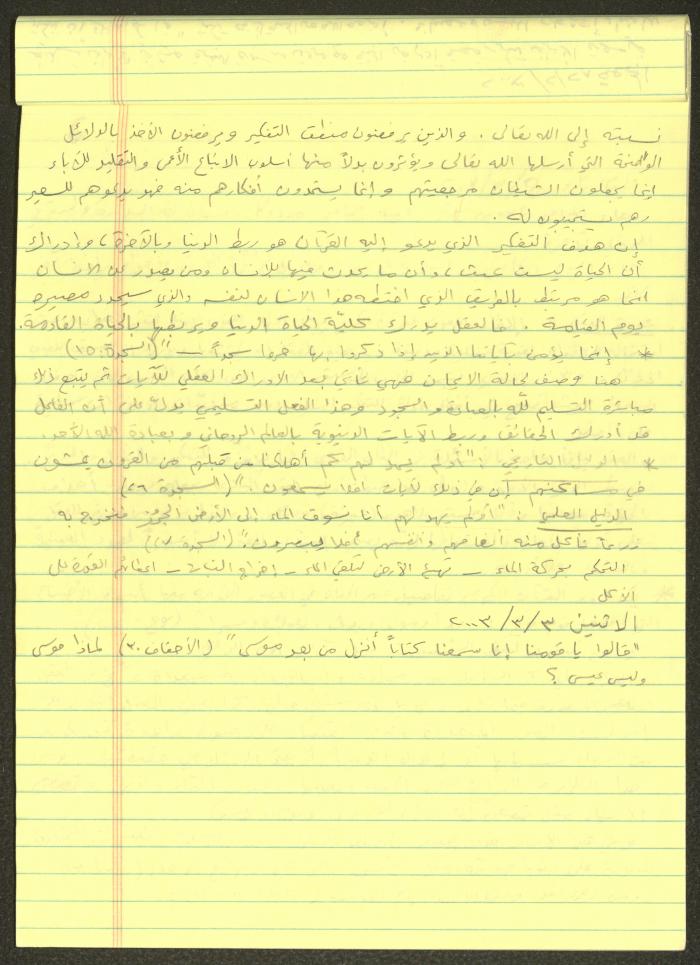 نسبته إلى الله تعالى. والذين يرفضون منطق التفكير ويرفضون الأخذ بالدلائل
الواضحة التي أرسلها الله تعالى ويؤثرون بدلاً منها أسلوب الاتباع الأعمى والتقليد للآباء
إنما يجعلون الشيطان مرجعيتهم وإنما يستمدون أفكارهم منه فهو يدعوهم للسعير
وهم يستجيبون له.
إن هدف التفكير الذي يدعو إليه القرآن هو ربط الدنيا وبالآخرة، وإدراك
أن الحياة ليست عبث، وأن ما يحدث فيها للإنسان ومن يصدر عن الانسان
انما هو مرتبط بالطريق الذي اختطه هذا الانسان لنفسه والذي سيحدد مصيره
يوم القيامة. فالعقل يدرك كليّة الحياة الدنيا ويربطها بالحياة القادمة.
* "إنما يؤمن بآياتنا الذين إذا ذكروا بها خروا سجداً –" (السجدة: ١٥)
هنا وصف لحالة الايمان فهي تأتي بعد الادراك العقلي للآيات ثم يتبع ذلك
مباشرة التسليم للّه بالعبادة والسجود وهذا الفعل التسليمي يدلّ على أن الفاعل
قد أدرك الحقائق وربط الآيات الدنيوية بالعالم الروحاني وبعبادة الله الأحد.
* الدليل التاريخي: "أولم يهد لهم كم أهلكنا من قبلهم من القرون يمشون
في مساكنهم إن في ذلك لآيات أفلا يسمعون." (السجدة ٢٦)
الدليل العلمي: "أولم يهد لهم أنا نسوق الماء إلى الأرض الجرز فنخرج به
زرعاً تأكل منه أنعامهم وأنفسهم أفلا يبصرون." (السجدة ٢٧)
التحكم بحركة الماء – تهيئ الأرض لتلقي الماء – إخراج النبات – اعطائهم القدرة على
الأكل
الاثنين ٣/٣/٢٠٠٣
"قالوا يا قومنا إنا سمعنا كتاباً أنزل من بعد موسى" (الأحقاف ٣٠) لماذا موسى
وليس عيسى؟